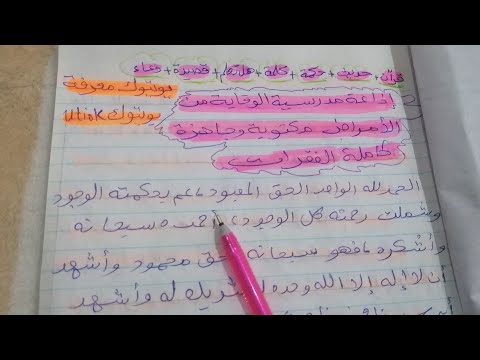 قرآن + حديث + حكمة + كلمة + هل تعلم + قصيدة + دعاء
يوتيوك معرفة
يوتيوك utiok
إذاعة مدرسية الوقاية من
الأمراض مكتوبة وجاهزة
كاملة الفقرات
الحمد لله الواحد الحق المعبود، عم بحكمته الوجود
وشملت رحمته كل الوجود، أحمده سبحانه
وأشكره فهو سبحانه حق محمود وأشهد
أن لا إله إلا الله وحده لا شريك له وأشهد